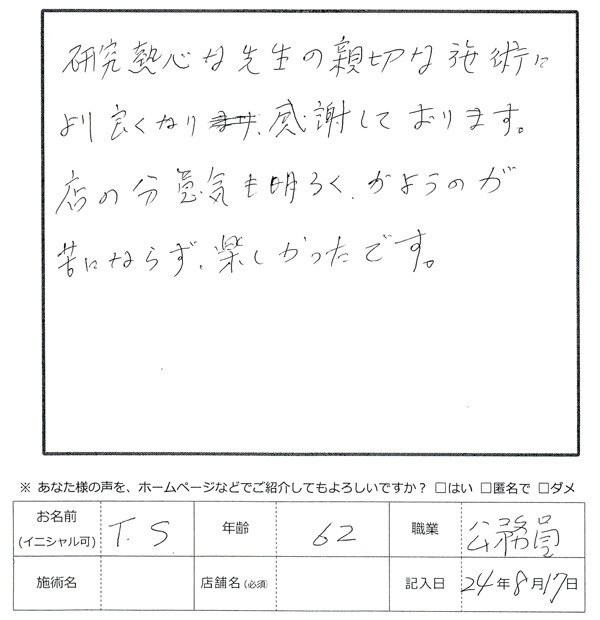 研究熱心な先生の親切な施術に
より良くなり、感謝しております。
店の分囲気も明ろく、かようのが
苦にならず、楽しかったです。
※ あなた様の声を、ホームページなどでご紹介してもよろしいですか? □はい □匿名で □ダメ
お名前(イニシャル可) T.S 年齢 62 職業 公務員
施術名 店舗名(必須) 記入日 24年8月17日